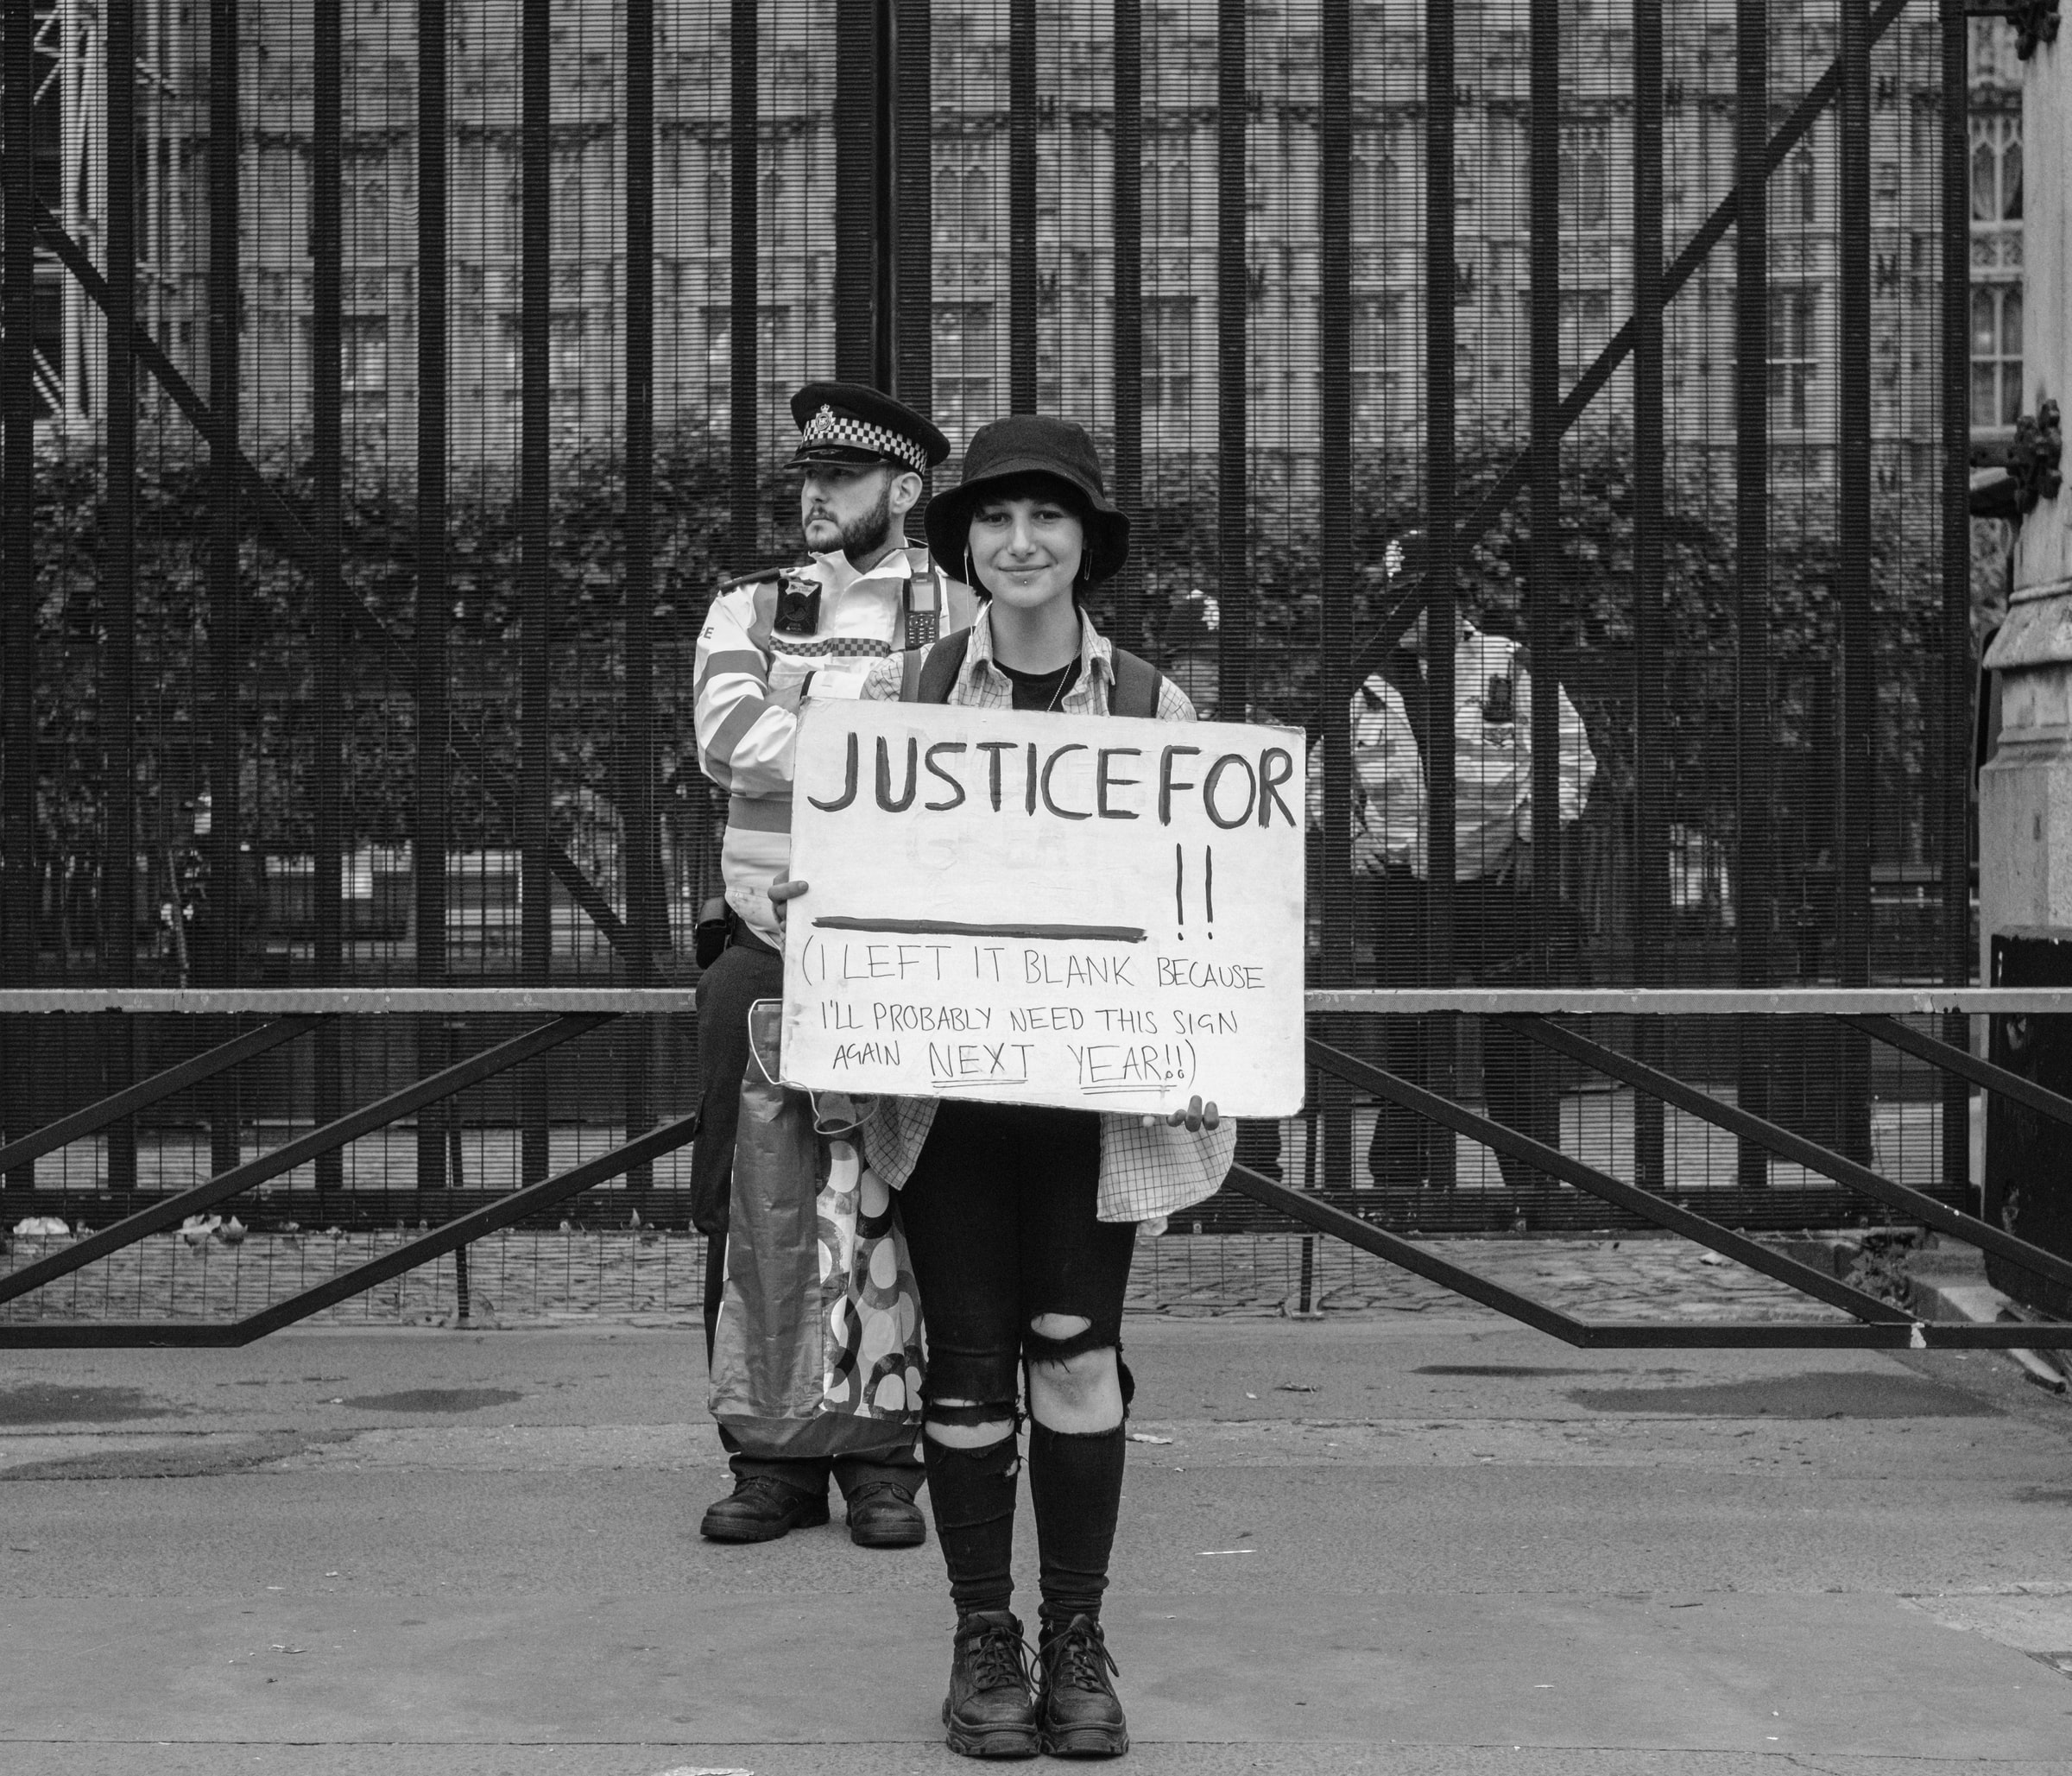 JUSTICE FOR
________ !!
(I LEFT IT BLANK BECAUSE
I'LL PROBABLY NEED THIS SIGN
AGAIN NEXT YEAR!!)